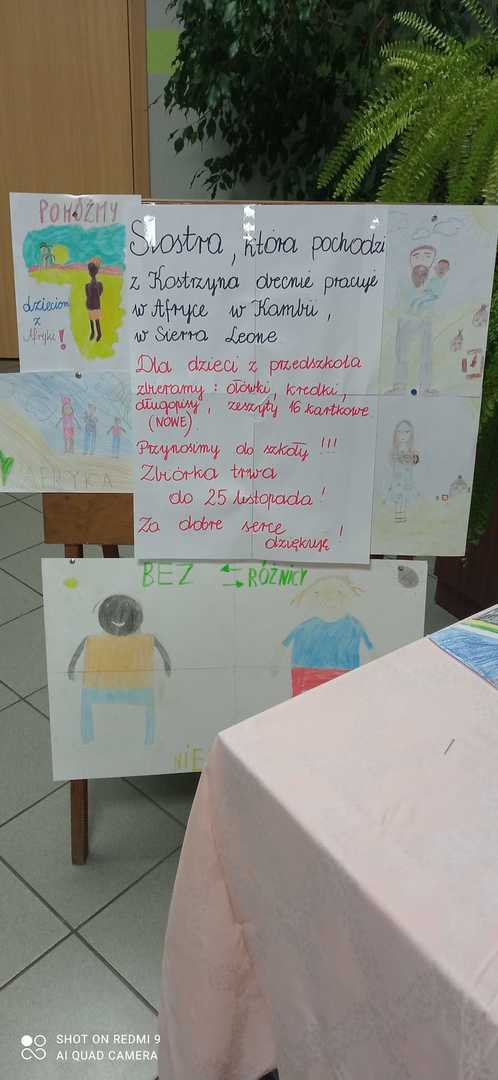 POMÓŻMY
dzieciom
z
Afryki!
AFRYKA
Siostra, która pochodzi
z Kostrzyna obecnie pracuje
w Afryce w Kambii,
w Sierra Leone
Dla dzieci z przedszkola
zbieramy: ołówki, kredki,
długopisy, zeszyty 16 kartkowe
(NOWE).
Przynosimy do szkoły!!!
Zbiórka trwa
do 25 listopada!
Za dobre serce
dziękuję!
BEZ RÓŻNICY
NIE
SHOT ON REDMI 9
AI QUAD CAMERA